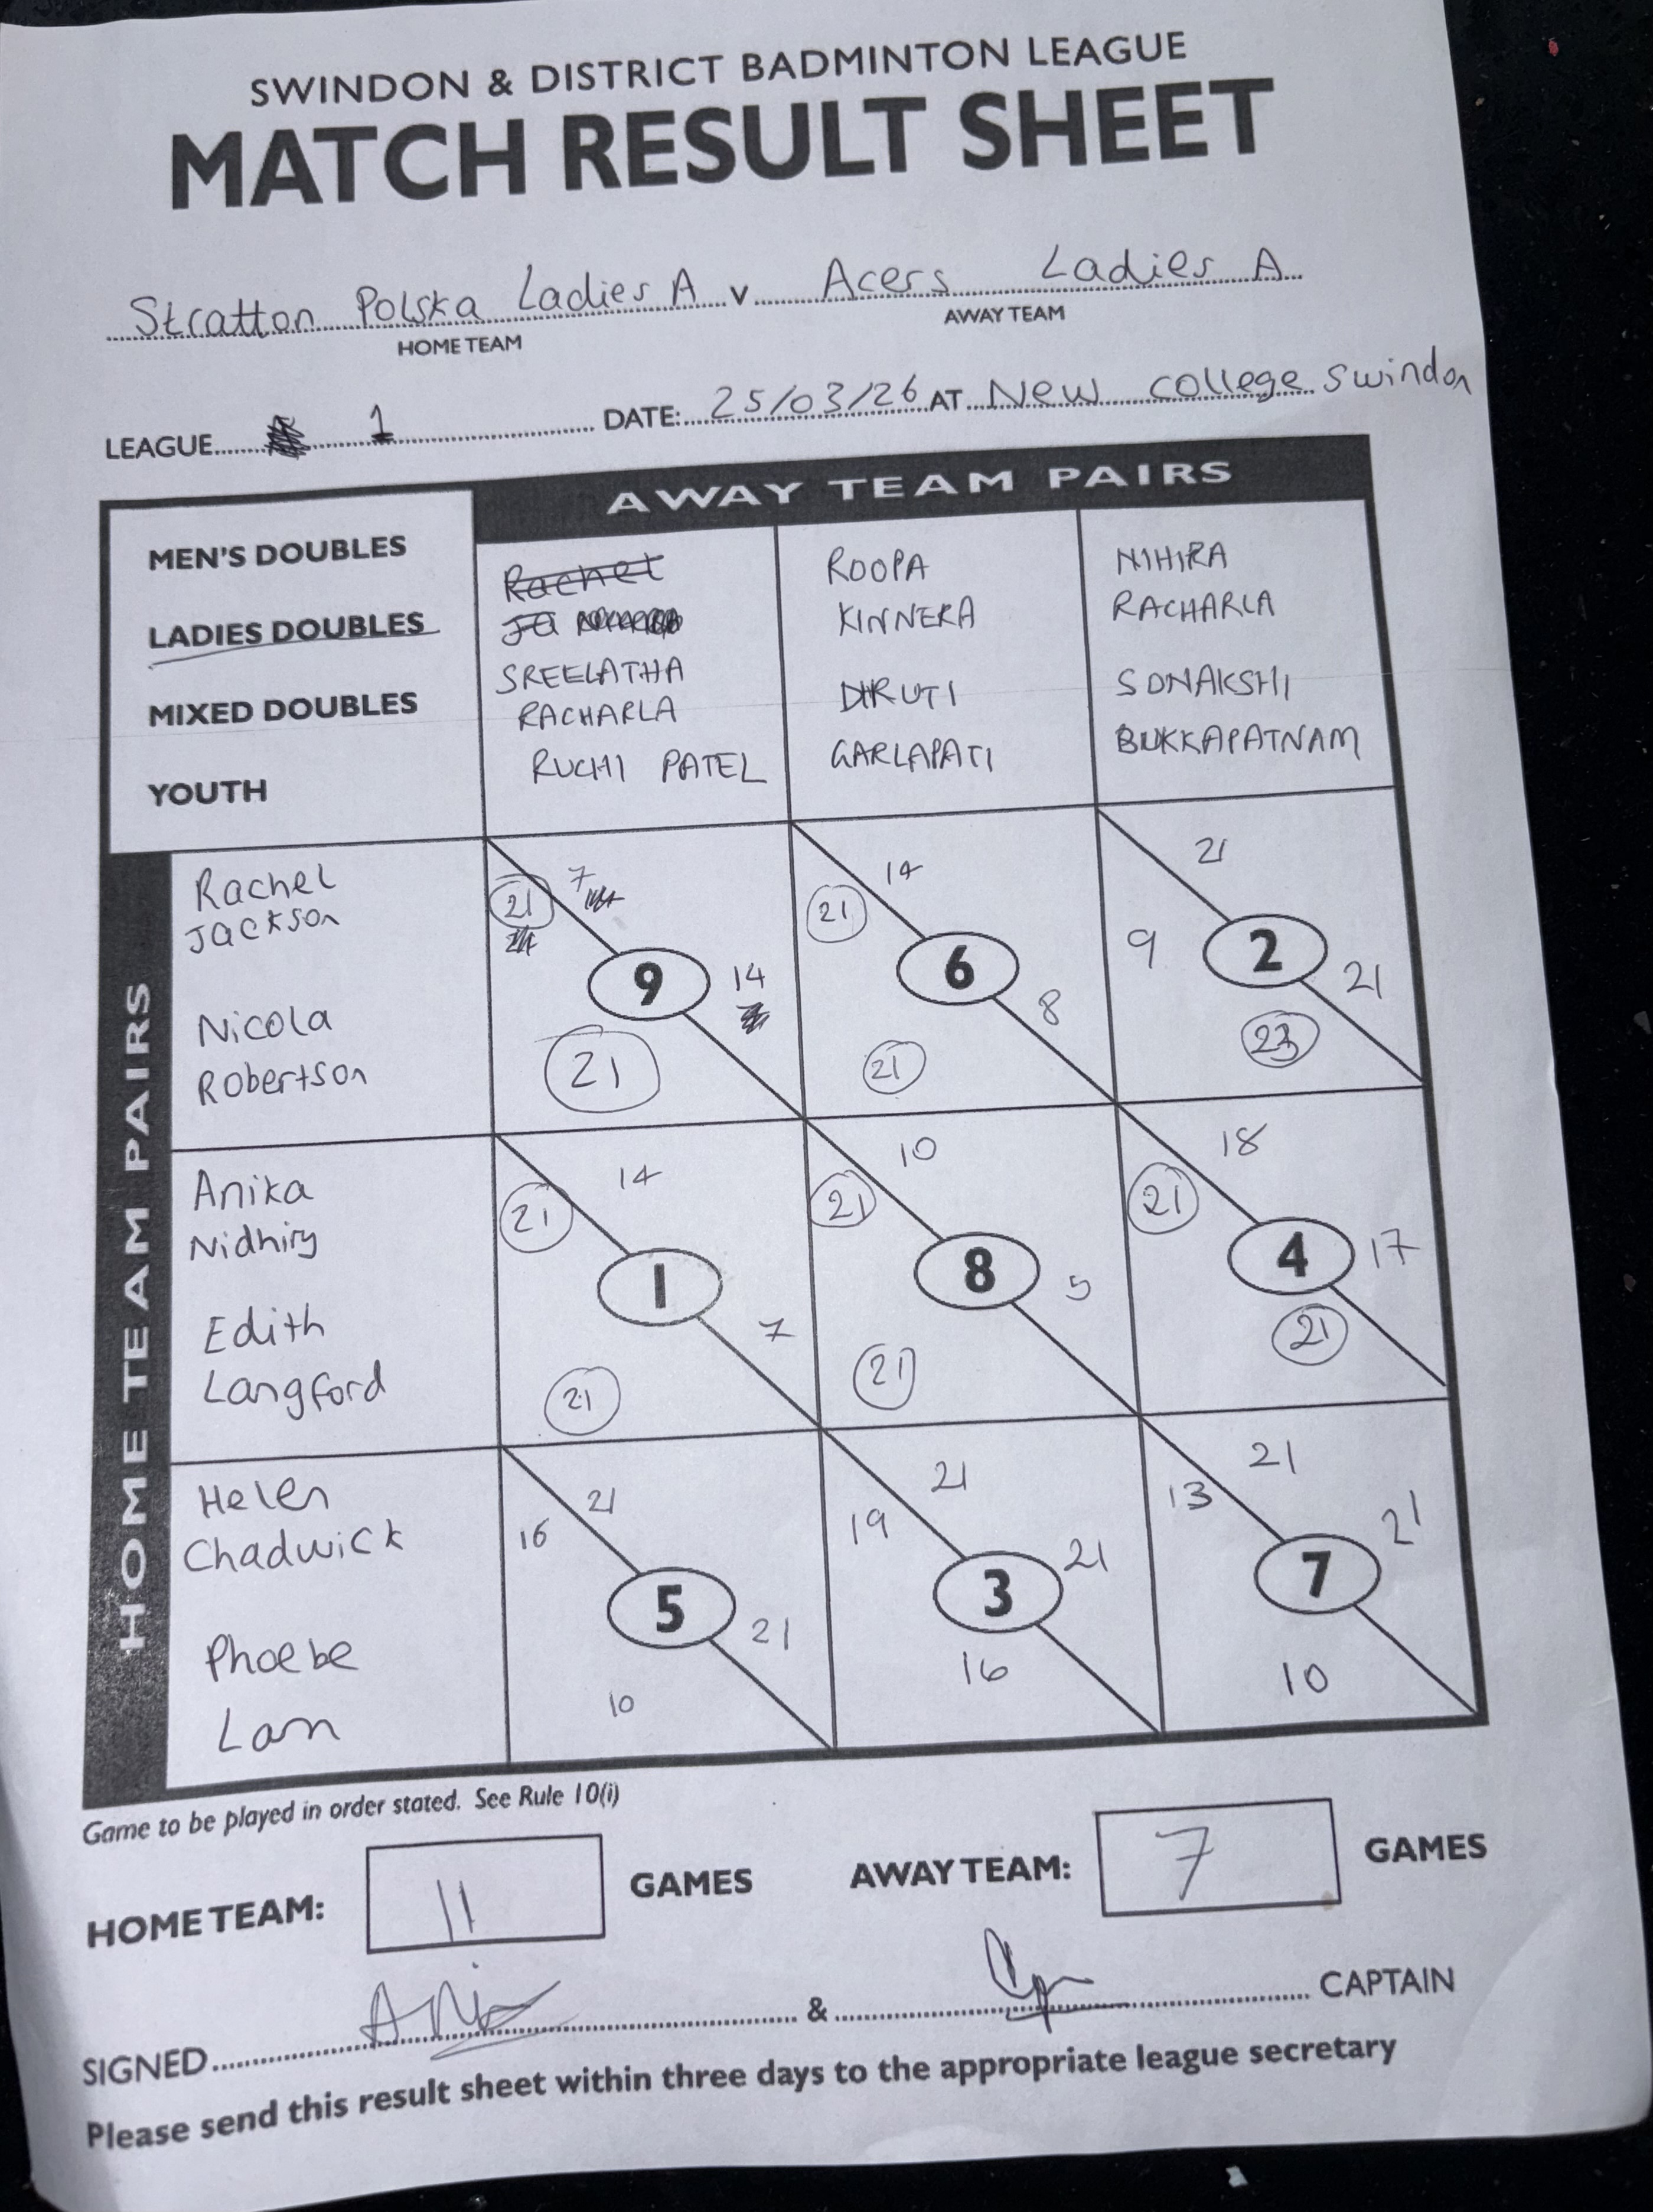 SWINDON & DISTRICT BADMINTON LEAGUE
MATCH RESULT SHEET
Stratton Polska Ladies A v Acers Ladies A
HOME TEAM
AWAY TEAM
LEAGUE 1 DATE: 25/03/26 AT New college swindon
MEN'S DOUBLES
LADIES DOUBLES
MIXED DOUBLES
YOUTH
AWAY TEAM PAIRS
Rachel
Ja
SREELATHA
RACHARLA
RUCHI PATEL
ROOPA
KINNERA
DHRUTI
GARLAPATI
NIHIRA
RACHARLA
SONAKSHI
BUKKAPATNAM
HOME TEAM PAIRS
Rachel
Jackson
Nicola
Robertson
21 7
9 14
21
14
21
6
8
21
21
9 2 21
23
Anika
Nidhiry
Edith
Langford
14
21
1
7
21
10
21
8
5
21
18
21
4 17
21
Helen
Chadwick
Phoebe
Lam
21
16
5 21
10
21
19
3 21
16
21
13
7 21
10
Game to be played in order stated. See Rule 10(i)
HOME TEAM: 11 GAMES AWAY TEAM: 7 GAMES
SIGNED & CAPTAIN
Please send this result sheet within three days to the appropriate league secretary